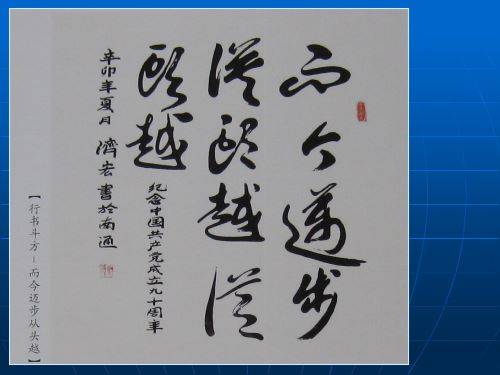 而今邁步
從頭越從
頭越
纪念中国共产党成立九十周年
辛卯年夏月 濟宏書於南通
【行书斗方－而今迈步从头越】